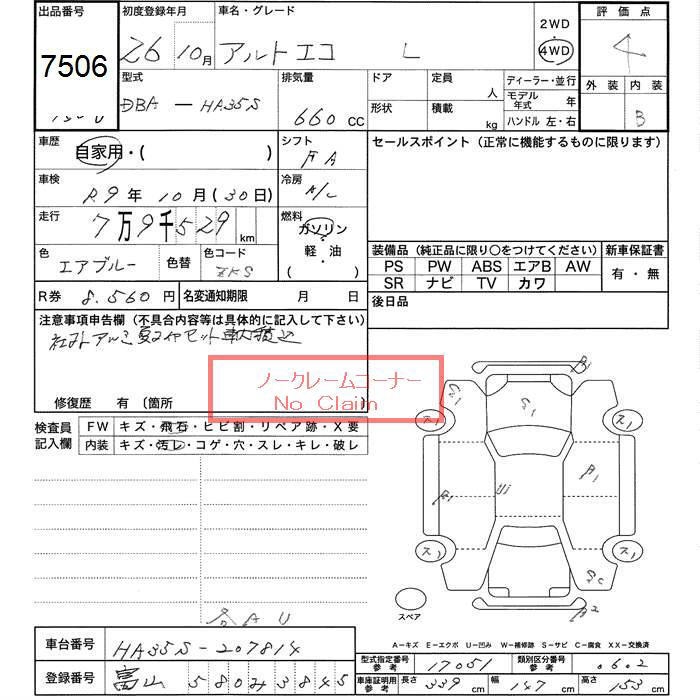 出品番号 初度登録年月 車名・グレード 2WD 評価点
7506 26 10月 アルトエコ L 4WD 4
型式 排気量 ドア 定員 人 ディーラー・並行 外装 内装
DBA-HA35S 660cc 形状 積載 kg モデル年式 年 B
ハンドル 左・右
車歴 自家用・( ) シフト FA セールスポイント（正常に機能するものに限ります）
車検 R.9年10月(30日) 冷房 A/C
走行 7万9千529km 燃料 ガソリン
軽・油
( )
色 エアブルー 色替 色コード ZKS
装備品（純正品に限り〇をつけてください） 新車保証書
PS PW ABS エアB AW 有・無
SR ナビ TV カワ
R券 8.560円 名変通知期限 月 日 後日品
注意事項申告欄（不具合内容等は具体的に記入して下さい）
社外アルミ夏タイヤセット車内積込
ノークレームコーナー
No Claim
修復歴 有〔箇所
検査員記入欄 FW キズ・飛石・ヒビ割・リペア跡・X要
内装 キズ・汚レ・コゲ・穴・スレ・キレ・破レ
S1
ス1 ス1
A1
Ui
ス1 ス1
A2
スペア
A-キズ E-エクボ U-凹み W-補修跡 S-サビ C-腐食 XX-交換済
車台番号 HA35S-207814
型式指定番号参考 17051 類別区分番号参考 0602
登録番号 富山 580 2 3845
車庫証明用参考 長さ 339cm 幅 147cm 高さ 153cm